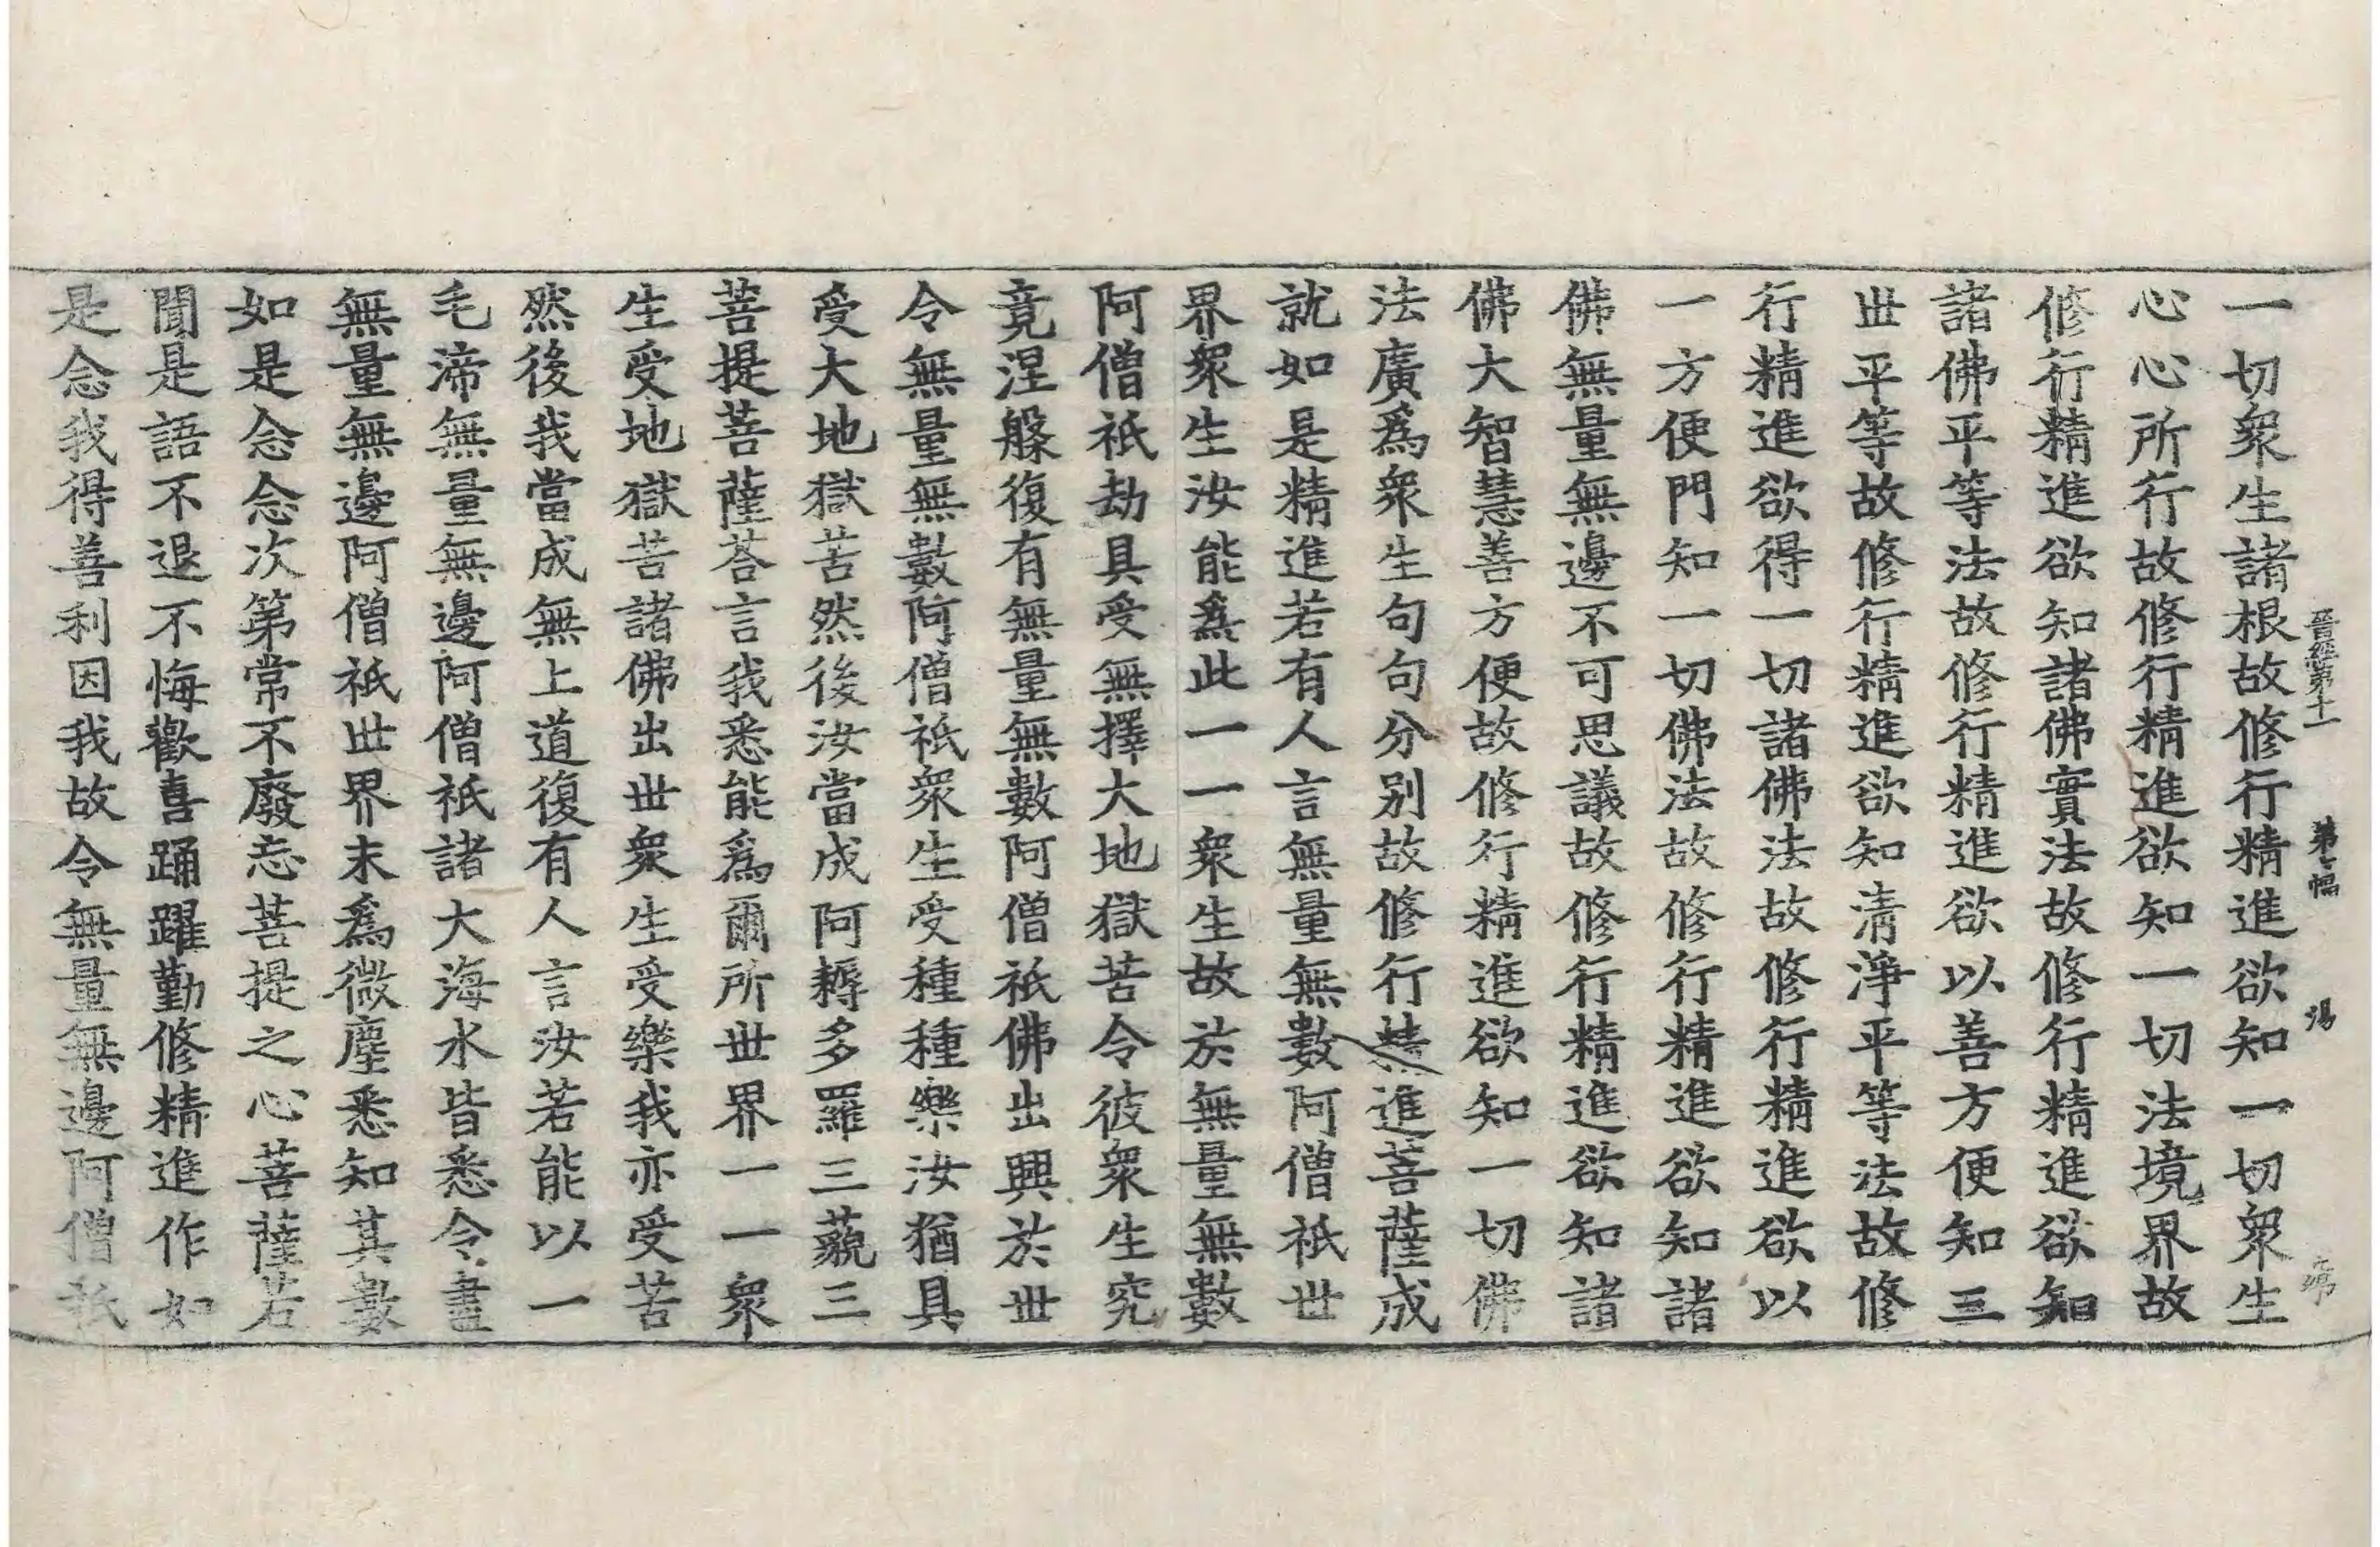 晉經第十一 第七幅 湯
一切衆生諸根故修行精進欲知一切衆生
心心所行故修行精進欲知一切法境界故
修行精進欲知諸佛實法故修行精進欲知
諸佛平等法故修行精進欲以善方便知三
世平等故修行精進欲知清淨平等法故修
行精進欲得一切諸佛法故修行精進欲以
一方便門知一切佛法故修行精進欲知諸
佛無量無邊不可思議故修行精進欲知諸
佛大智慧善方便故修行精進欲知一切佛
法廣爲衆生句句分別故修行精進菩薩成
就如是精進若有人言無量無數阿僧祇世
界衆生汝能爲此一一衆生故於無量無數
阿僧祇劫具受無擇大地獄苦令彼衆生究
竟涅槃復有無量無數阿僧祇佛出興於世
令無量無數阿僧祇衆生受種種樂汝猶具
受大地獄苦然後汝當成阿耨多羅三藐三
菩提菩薩荅言我悉能爲爾所世界一一衆
生受地獄苦諸佛出世衆生受樂我亦受苦
然後我當成無上道復有人言汝若能以一
毛渧無量無邊阿僧祇諸大海水皆悉令盡
無量無邊阿僧祇世界末爲微塵悉知其數
如是念念次第常不廢忘菩提之心菩薩若
聞是語不退不悔歡喜踊躍勤修精進作如
是念我得善利因我故令無量無邊阿僧祇